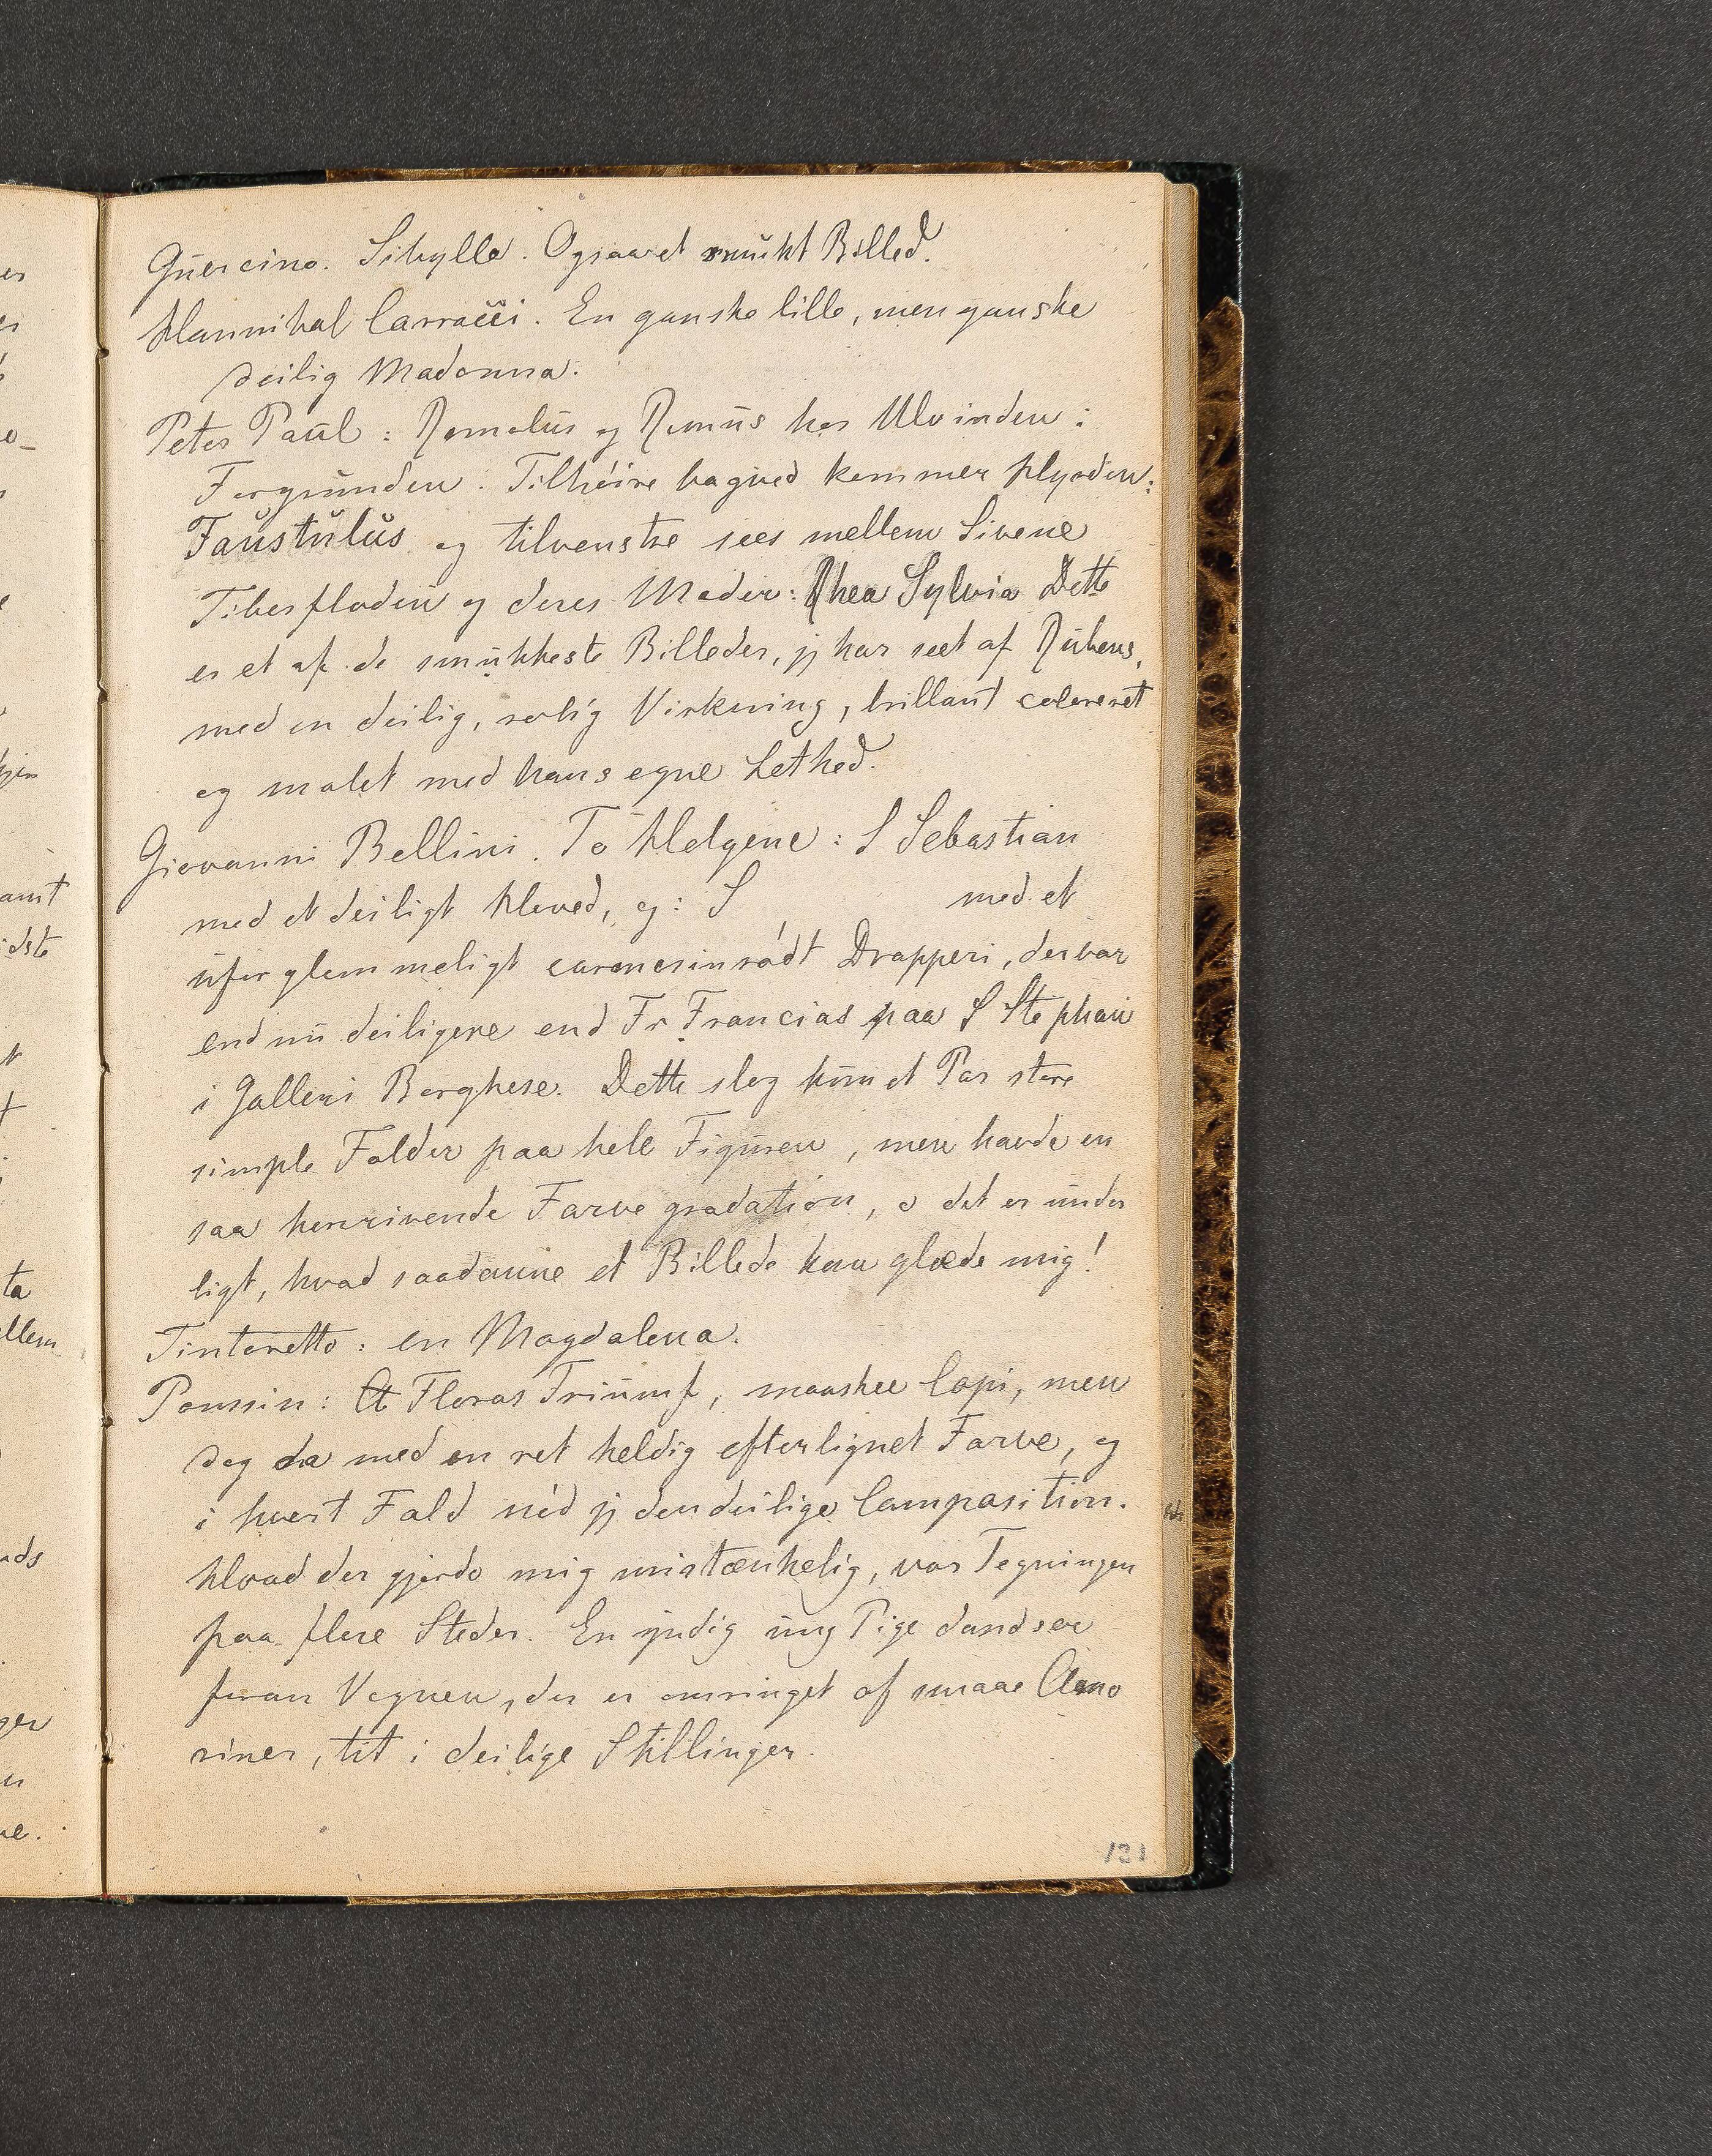 Guercino. Sibylle. Ogsaa et smukt Billed.
Hannibal Carracci. En ganske lille, men ganske
deilig Madonna.
Peter Paul: Romolus og Remus hos Ulvinden i
Forgrunden. Tilhöire bagved kommer Hyrden:
Faustulus og tilvenstre sees mellem Sivene
Tiberfloden og deres Moder: Rhea Sylvia Dette
er et af de smukkeste Billeder, jg har seet af Rubens,
med en deilig, rolig Virkning, brillant coloreret
og malet med hans egne Lethed.
Giovanni Bellini. To Helgene: S Sebastian
med et deiligt Hoved, og: S med et
uforglemmeligt carmosinródt Drapperi, der var
end nu deiligere end Fr. Francias paa S Stephan
i Galleri Borghese. Dette slog kun et Par store
simple Folder paa hele Figuren, men havde en
saa henrivende Farve gradation, o det er under
ligt, hvad saadanne et Billede kan glæde mig!
Tintoretto: en Magdalena.
Poussin: Et Floras Triumf, maaskee Copi, men
dog da med en ret heldig efterlignet Farve, og
i hvert Fald nód jg den deilige Composition.
Hvad der gjorde mig mistænkelig, var Tegningen
paa flere Steder. En yndig ung Pige dandser
foran Vognen, der er omringet af smaae Amo
riner, tit i deilige Stillinger.
131
er
amt
idste
ta
ellem